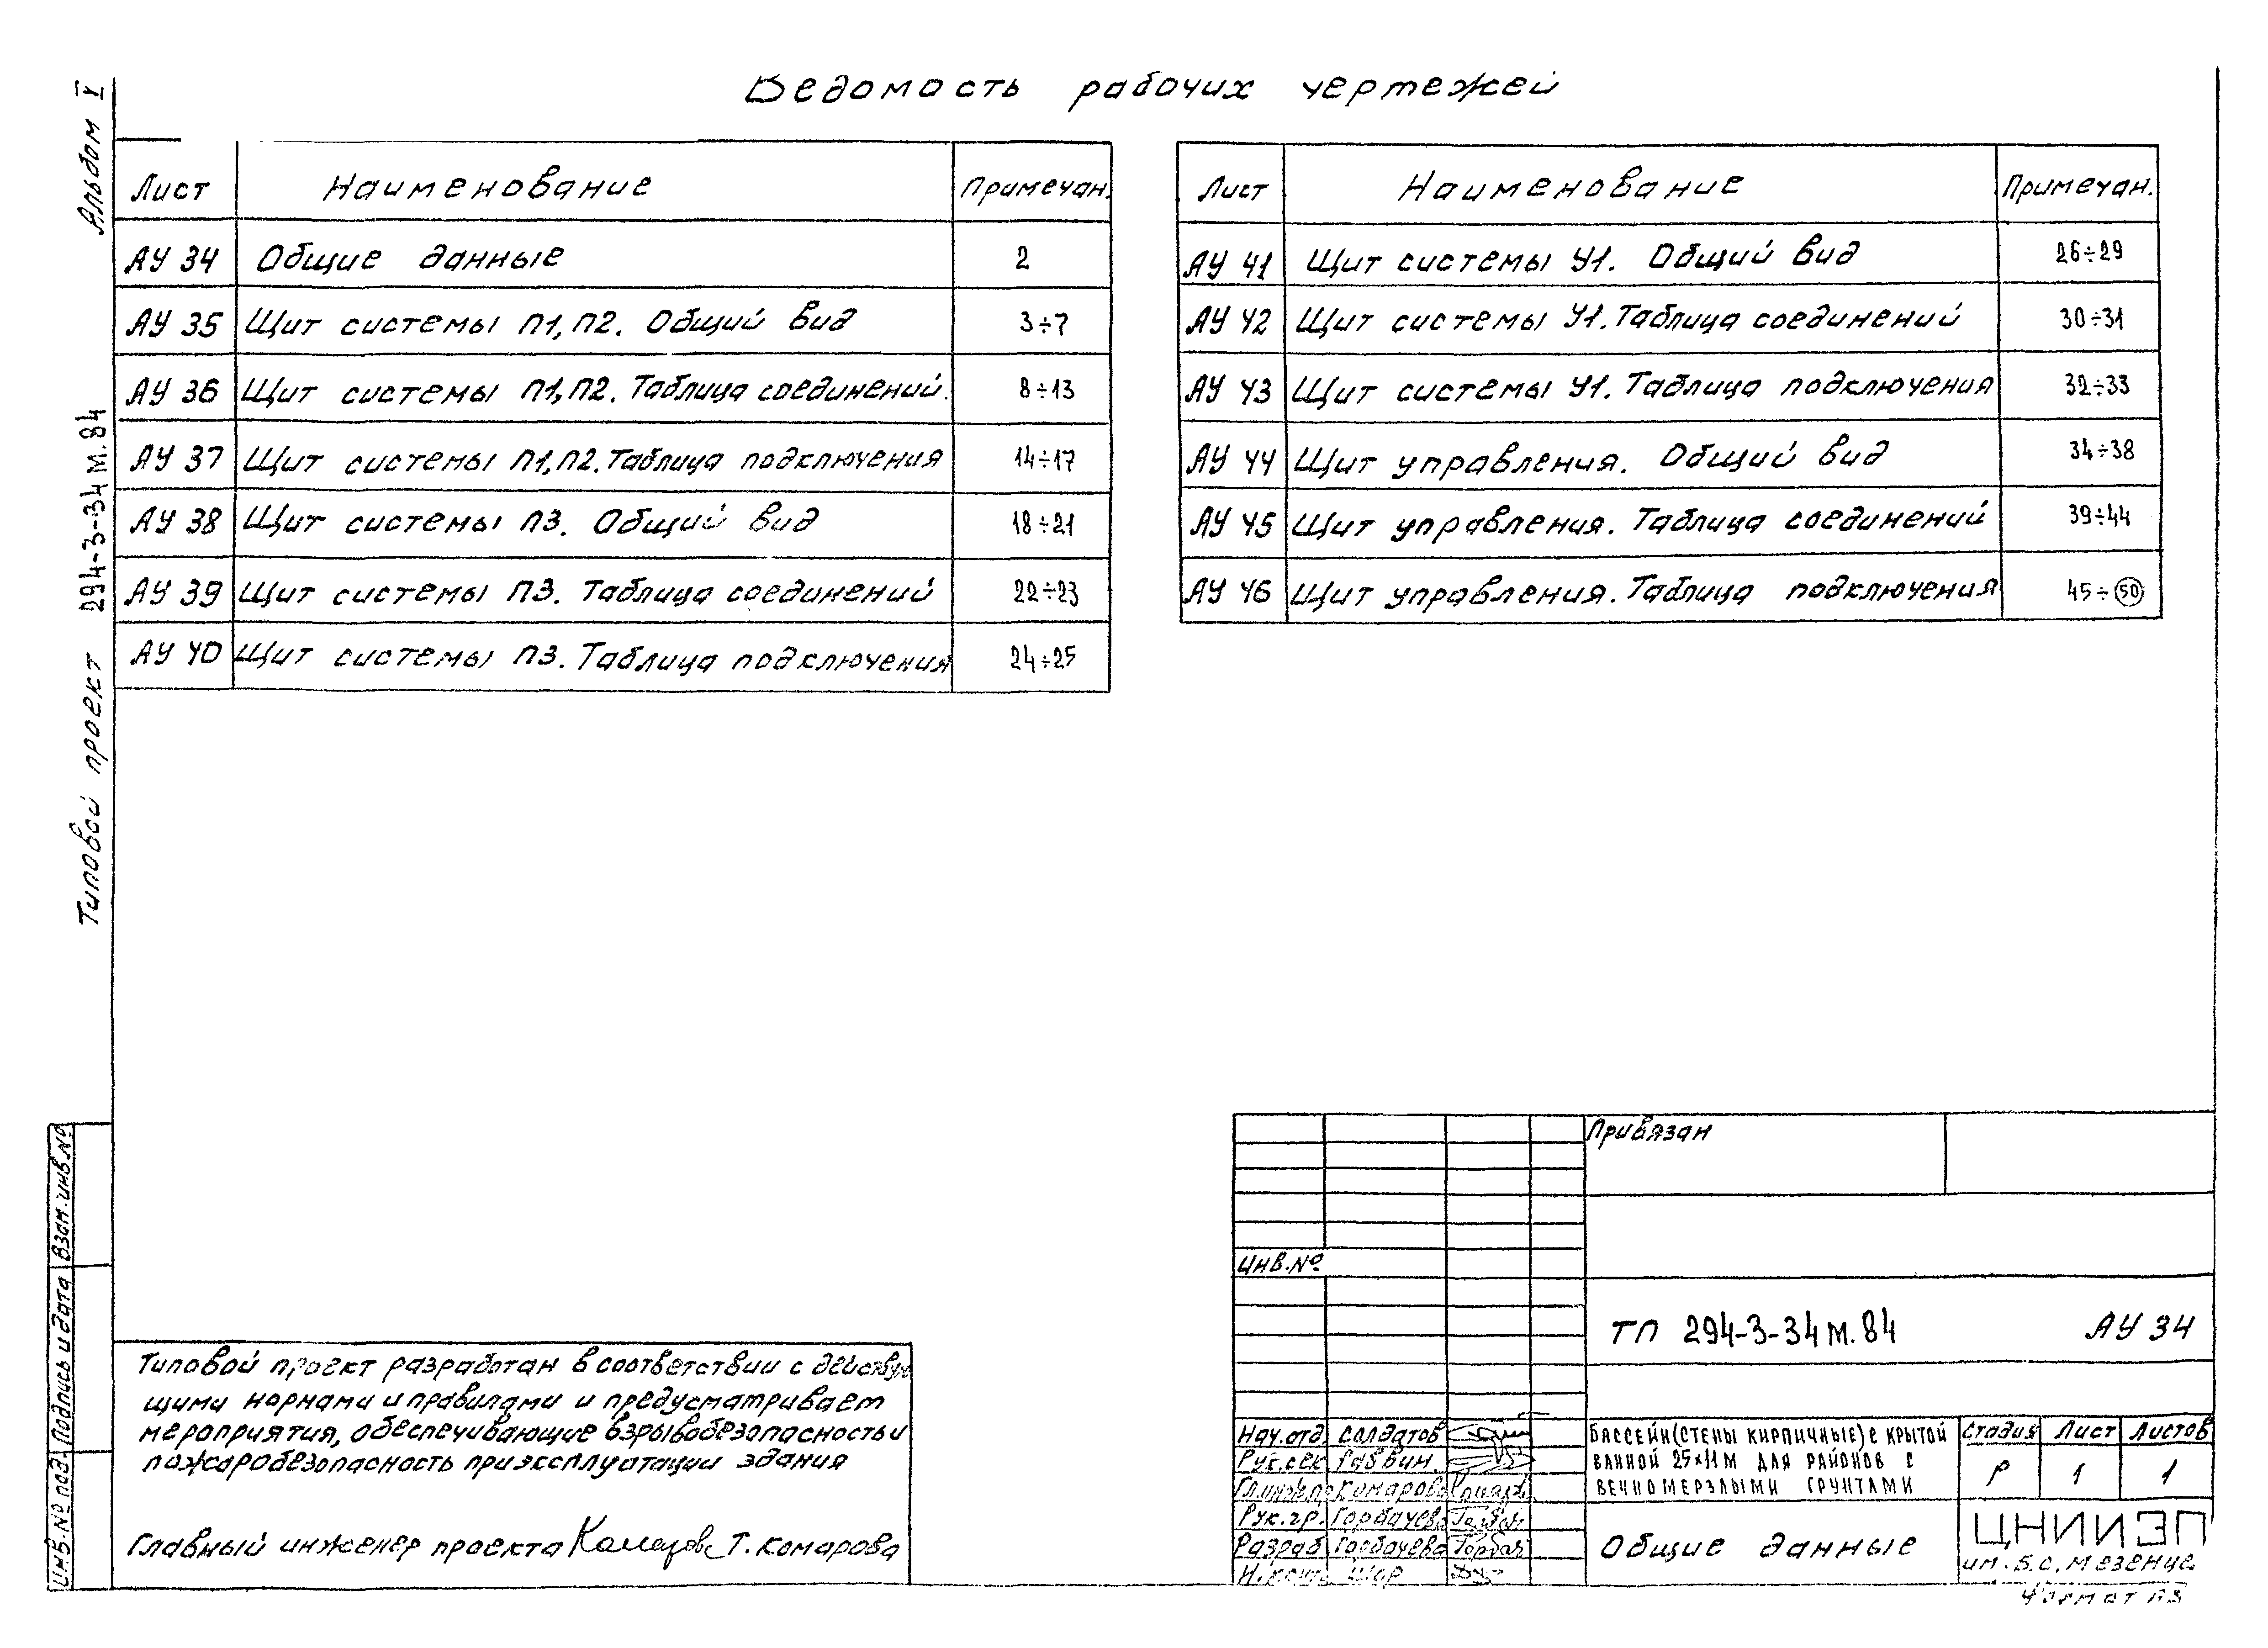 Ведомость рабочих чертежей
Альбом V
Типовой проект 294-3-34м.84
Лист Наименование Примечан.
АУ 34 Общие данные 2
АУ 35 Щит системы П1, П2. Общий вид 3÷7
АУ 36 Щит системы П1, П2. Таблица соединений. 8÷13
АУ 37 Щит системы П1, П2. Таблица подключения 14÷17
АУ 38 Щит системы П3. Общий вид 18÷21
АУ 39 Щит системы П3. Таблица соединений 22÷23
АУ 40 Щит системы П3. Таблица подключения 24÷25
Лист Наименование Примечан.
АУ 41 Щит системы У1. Общий вид 26÷29
АУ 42 Щит системы У1. Таблица соединений 30÷31
АУ 43 Щит системы У1. Таблица подключения 32÷33
АУ 44 Щит управления. Общий вид 34÷38
АУ 45 Щит управления. Таблица соединений 39÷44
АУ 46 Щит управления. Таблица подключения 45÷50
Инв. № под. Подпись и дата Взам. инв. №
Типовой проект разработан в соответствии с действую
щими нормами и правилами и предусматривает
мероприятия, обеспечивающие взрывобезопасность и
пожаробезопасность при эксплуатации здания
Главный инженер проекта Т. Комарова
Привязан
Инв. №
ТП 294-3-34м.84 АУ 34
Нач. отд. Солдатов
Рук. сек Раввин.
Гл. инж. пр Комарова
Рук. гр. Горбачева
Разраб Горбачева
Н. конт. Шор
Бассейн (стены кирпичные) с крытой
ванной 25×11м для районов с
вечномерзлыми грунтами
Стадия Лист Листов
Р 1 1
Общие данные
ЦНИИЭП
им. Б.С. Мезенце
Формат А3